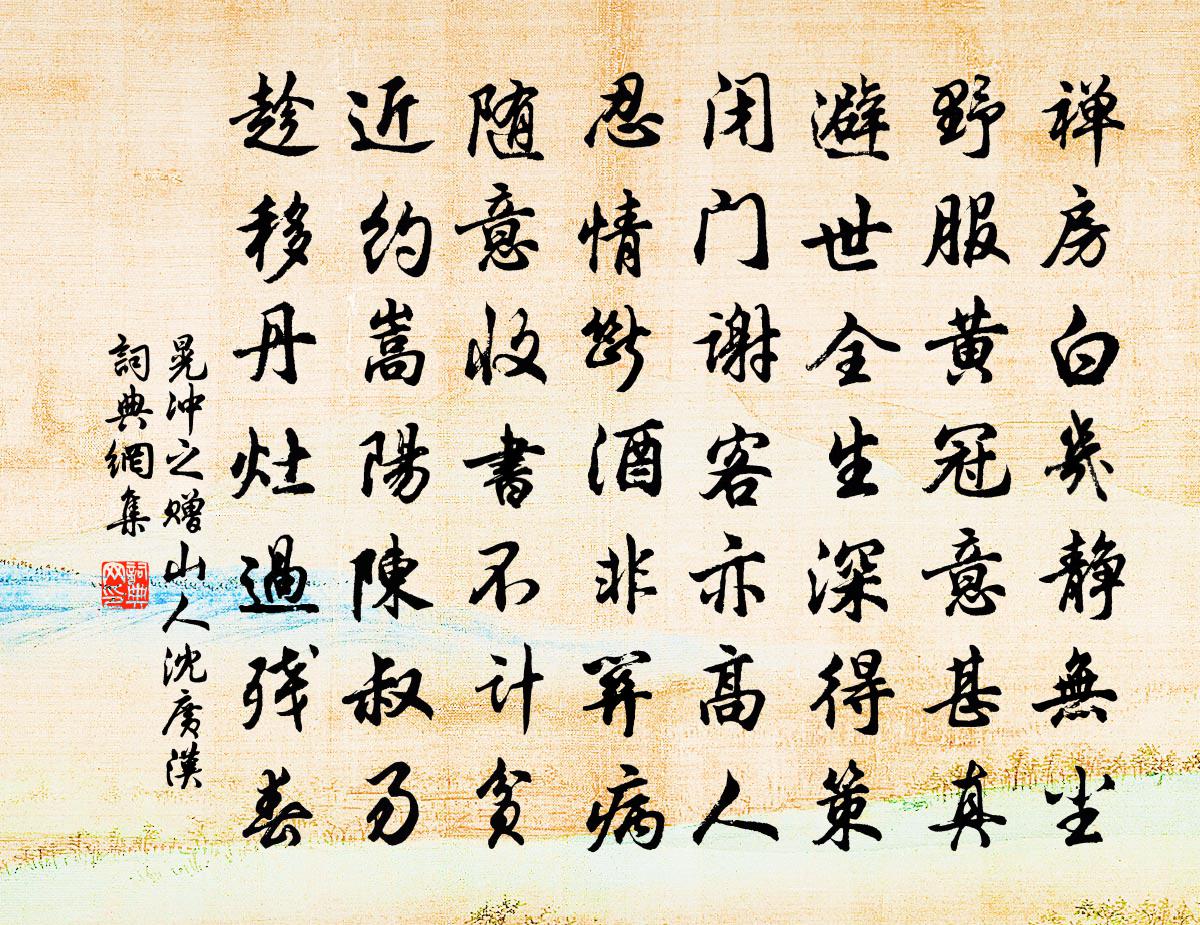 禅房白幾静無尘
野服黄冠意甚真
避世全生深得策
闭门谢客亦高人
忍情断酒非关病
随意收書不计贫
近约嵩陽陳叔易
趁移丹灶過残春
晁冲之赠山人沈廣漢
詞典網集
詞典网印